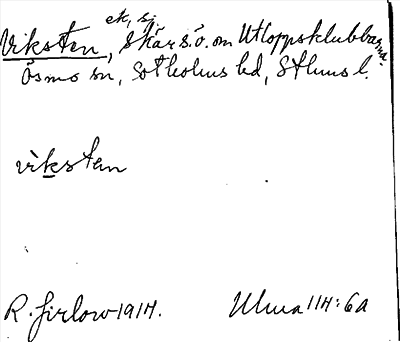 ek, sj.
Viksten, Skär s.ö. om Utloppsklubbarna.
Ösmo sn, Sotholms hd, Sthlms l.
vìksten
R. Jirlow 1914.
Ulma 114:6a